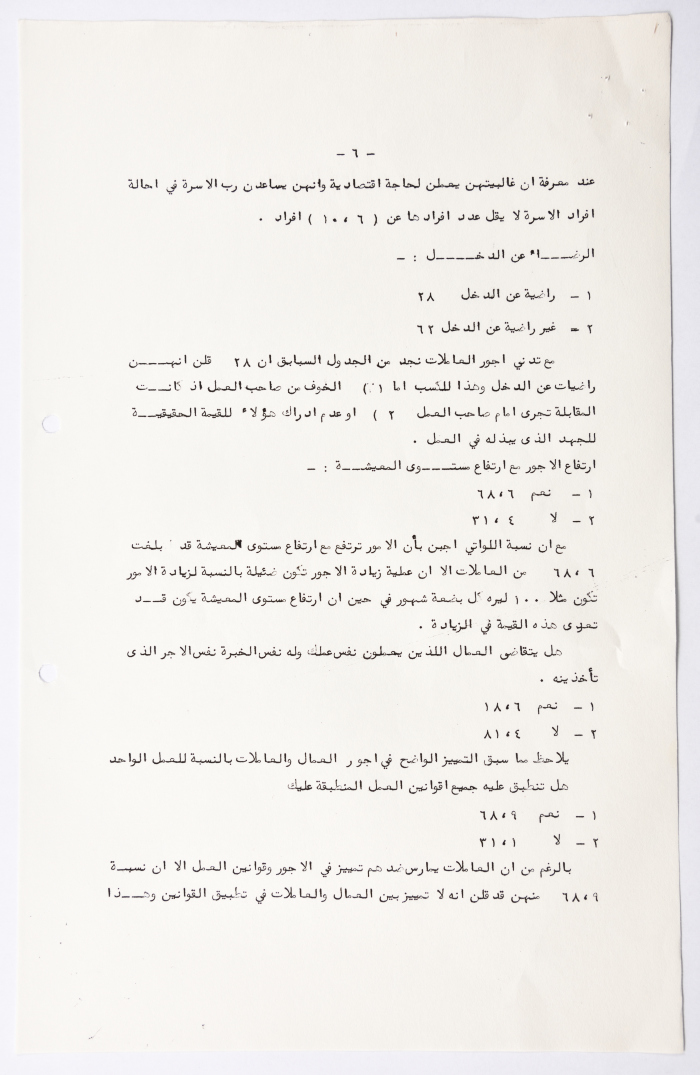 - ٦ -
عند معرفة ان غالبيتهن يعملن لحاجة اقتصادية وانهن يساعدن رب الاسرة في احالة
افراد الاسرة لا يقل عدد افرادها عن ( ١٠،٦ ) افراد .
الرضـــاء عن الدخــــل : -
١ - راضية عن الدخل ٢٨
٢ - غير راضية عن الدخل ٦٢
مع تدني اجور العاملات نجد من الجدول السابق ان ٢٨ قلن انهــــن
راضيات عن الدخل وهذا للكسب اما ١ ) الخوف من صاحب العمل اذ كانـــت
المقابلة تجرى امام صاحب العمل ٢ ) او عدم ادراك هؤلاء للقيمة الحقيقيــة
للجهد الذى يبذله في العمل .
ارتفاع الاجور مع ارتفاع مستـــوى المعيشــة : -
١ - نعم ٦٨،٦
٢ - لا ٣١،٤
مع ان نسبة اللواتي اجبن بأن الامور ترتفع مع ارتفاع مستوى المعيشة قد بلغت
٦٨،٦ من العاملات الا ان عملية زيادة الاجور تكون ضئيلة بالنسبة لزيادة الامور
تكون مثلا ١٠٠ ليره كل بضعة شهور في حين ان ارتفاع مستوى المعيشة يكون قــد
تعدى هذه القيمة في الزيادة .
هل يتقاضى العمال اللذين يعملون نفس عملك وله نفس الخبرة نفس الاجر الذى
تأخذينه .
١ - نعم ١٨،٦
٢ - لا ٨١،٤
يلاحظ مما سبق التمييز الواضح في اجور العمال والعاملات بالنسبة للعمل الواحد
هل تنطبق عليه جميع اقوانين العمل المنطبقة عليك
١ - نعم ٦٨،٩
٢ - لا ٣١،١
بالرغم من ان العاملات يمارس ضدهم تمييز في الاجور وقوانين العمل الا ان نسبـة
٦٨،٩ منهن قد قلن انه لا تمييز بين العمال والعاملات في تطبيق القوانين وهــذا